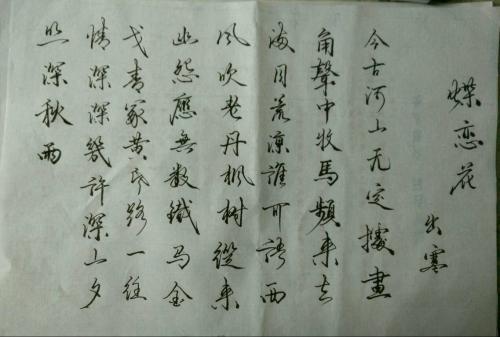 蝶恋花
出塞
今古河山无定據畫
角聲中牧馬頻来去
满目荒凉誰可語西
風吹老丹枫树從来
幽怨應無数鐵马金
戈青冢黄昏路一往
情深深幾许深山夕
照深秋雨